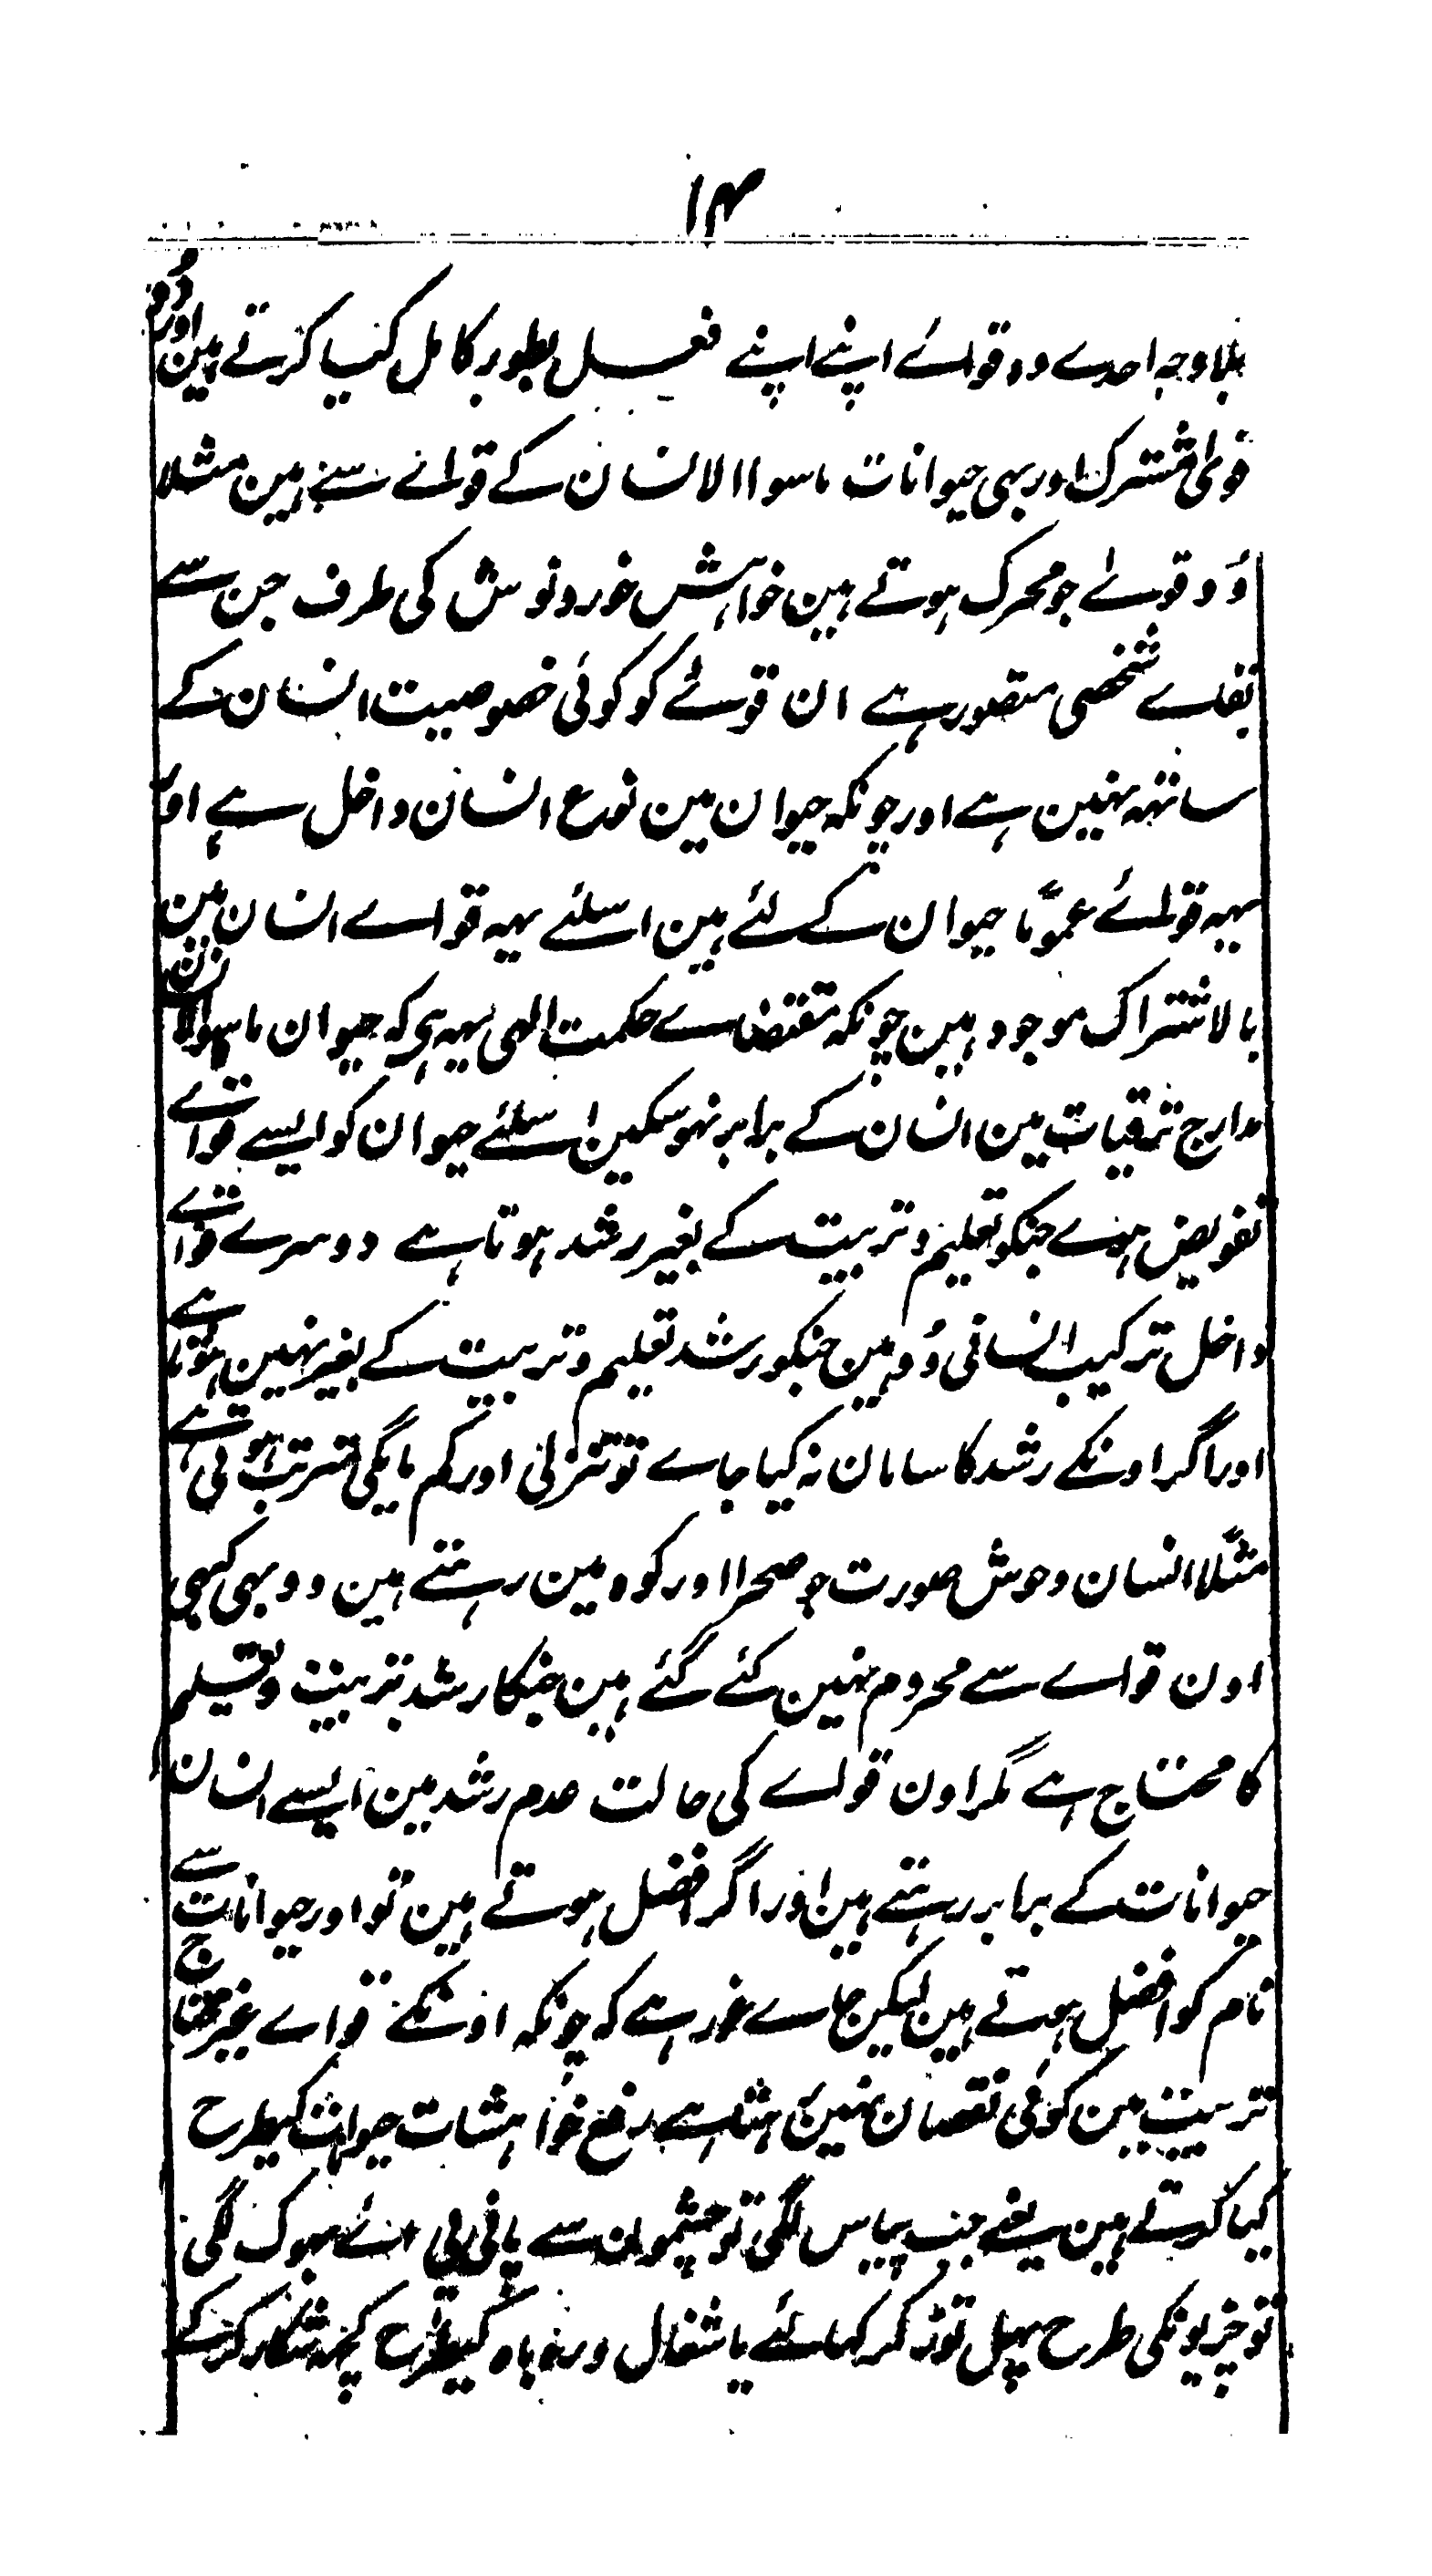 ۱۴
بلاوجہ احدے وہ قواے اپنے اپنے فعل بطور کامل کیا کرتے ہین اور وُہ
قوی مشترک اور بہی حیوانات ماسوا الانسان کے قواے سے ہین مثلا
وُہ قوے جو محرک ہوتے ہین خواہش خورد و نوش کی طرف جن سے
بقاے شخصی متصور ہے ان قوے کو کوئی خصوصیت انسان کے
ساتہہ نہین ہے اور چونکہ حیوان مین نوع انسان داخل ہے اور
یہہ قواے عموًما حیوان کے لئے ہین اسلئے یہہ قواے انسان مین
بالاشتراک موجود ہین چونکہ مقتضاے حکمت الہی یہہ ہی کہ حیوان ماسوا الانسان
مدارج ترقیات مین انسان کے برابر نہو سکین اسلئے حیوان کو ایسے قواے
تفویض ہوے جنکو تعلیم و تربیت کے بغیر رشد ہوتا ہے دوسرے قواے
داخل ترکیب انسانی وُہ ہین جنکو رشد تعلیم و تربیت کے بغیر نہین ہوتا ہے
اور اگر اونکے رشد کا سامان نہ کیا جاے تو تنزلی اور کم مایگی مترتب ہوتی ہے
مثلًا انسان وحوش صورت جو صحرا اور کوہ مین رہتے ہین وہ بہی کبہی
اون قواے سے محروم نہین کئے گئے ہین جنکا رشد تربیت و تعلیم
کا محتاج ہے مگر اون قواے کی حالت عدم رشد مین ایسے انسان
حیوانات کے برابر رہتے ہین اور اگر افضل ہوتے ہین تو اور حیوانات سے
نام کو افضل ہوتے ہین لیکن جاے غور ہے کہ چونکہ اونکے قواے غیر محتاج
تربیت مین کوئی نقصان نہین ہے رفع خواہشات حیوانات کیطرح
کیا کرتے ہین یعنے جب پیاس لگی تو چشمون سے پانی پی آئے بہوک لگی
تو چڑیونکی طرح پہل توڑ کر کہا لئے یا شغال و روباہ کیطرح کچہہ شکار کر کے